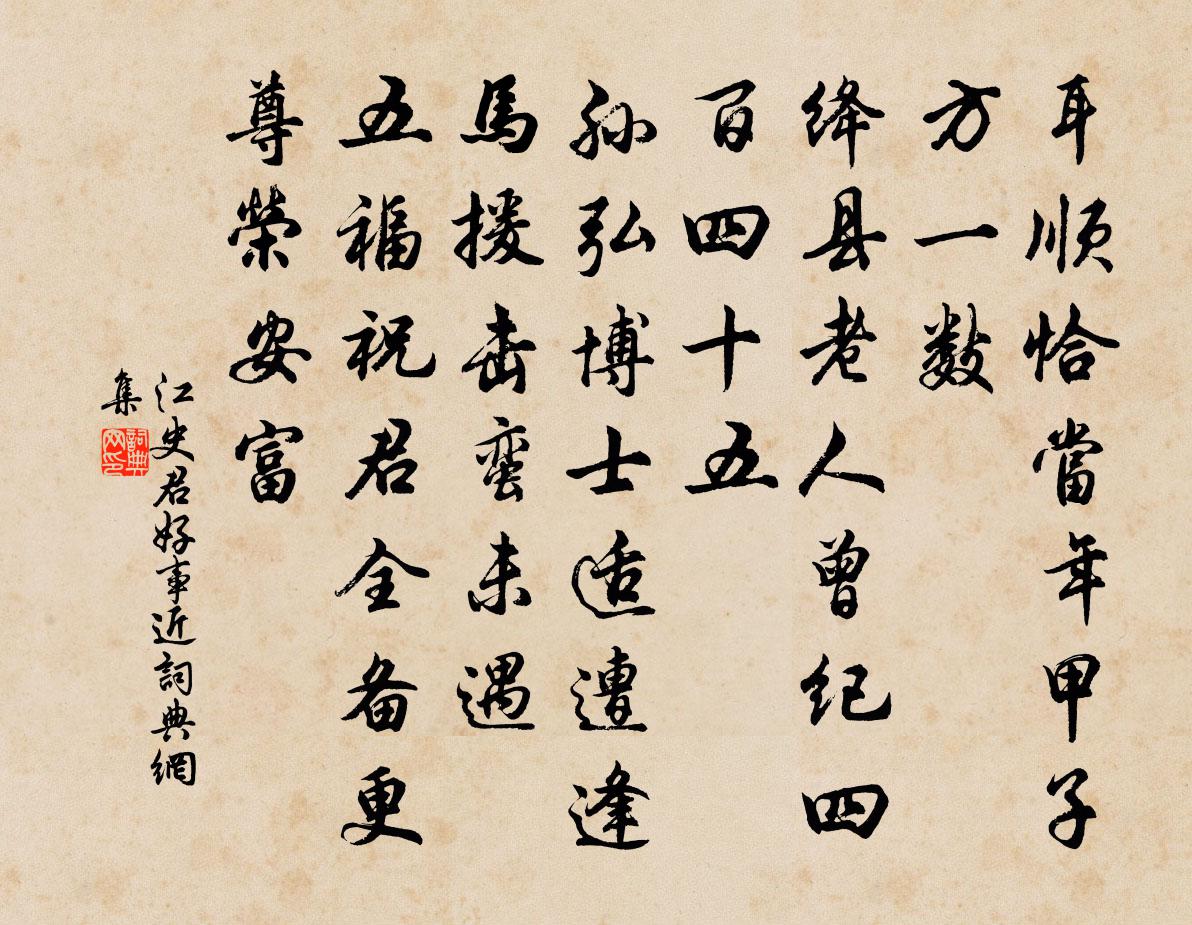 耳順恰當年甲子
方一數
绛县老人曾纪四
百四十五
孙弘博士适遭逢
馬援击蛮未遇
五福祝君全备更
尊榮安富
江史君好事近詞典網
集
詞典网印